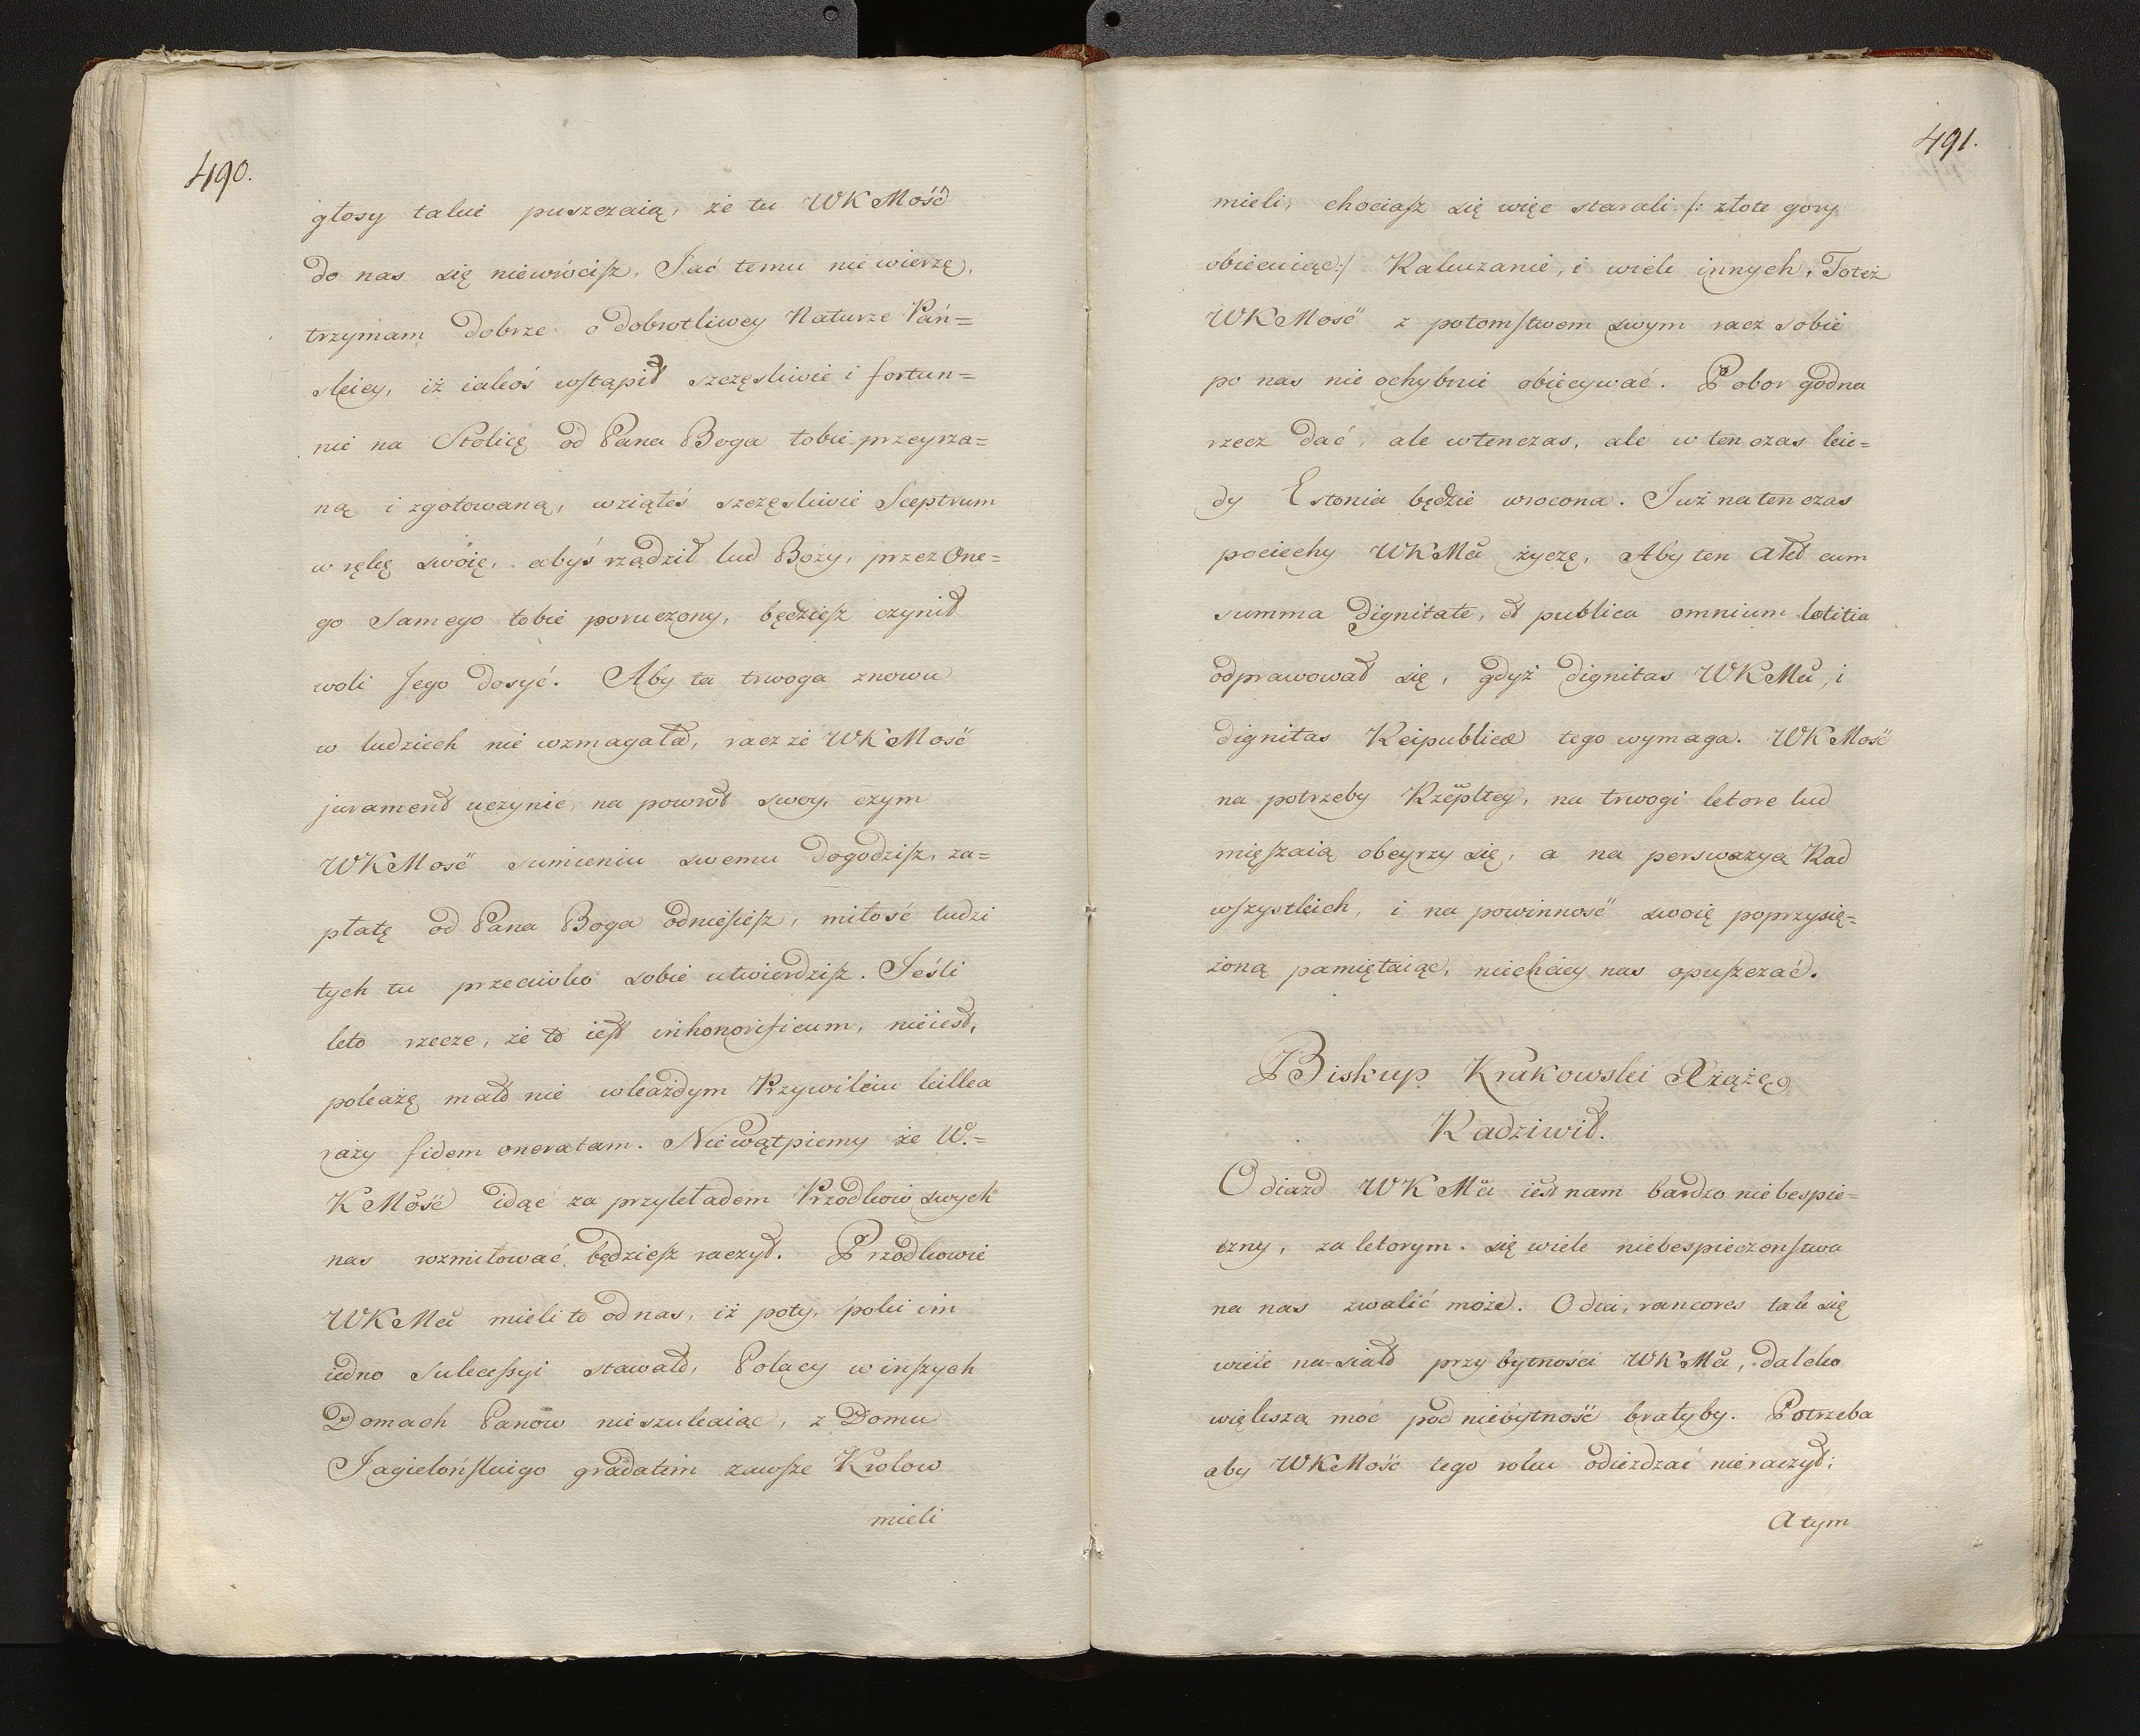 490.
głosy takie puszczaią, że tu WKMość
do nas się niewrócisz, Jać temu nie wierzę,
trzymam dobrze o dobrotliwey Naturze Pań=
skiey, iż iakoś wstąpił szczęsliwie i fortun=
nie na Stolicę od Pana Boga tobie przeyrza=
ną i zgotowaną, wziąłeś szczęsliwie Sceptrum
w rękę swóię, abyś rządził lud Boży, przez One=
go Samego tobie poruczony, będziesz czynił
woli Jego dosyć. Aby ta trwoga znowu
w ludziech nie wzmagała, racz że WKMość
jurament uczynić, na powrót swoy, czym
WKMość sumieniu swemu dogodzisz, za=
płatę od Pana Boga odniesiesz, miłość ludzi
tych tu przeciwko sobie utwierdzisz. Jeśli
kto rzecze, że to iest inhonorificum, nieiest,
pokażę mało nie wkażdym Przywileiu kilka
razy fidem oneratam. Niewątpiemy że W.=
KMość idąc za przykładem Przodków swych
nas rozmiłować będziesz raczył. Przodkowie
WKMci mieli to od nas, iż poty, poki im
iedno Sukcessyi stawało, Polacy w inszych
Domach Panów nieszukaiąc, z Domu
Jagielońskiego gradatim zawsze Krolow
mieli
491.
mieli, chociasz się więc starali /: złote gory
obiecuiąc:/ Rakuzanie, i wiele innych, Toteż
WKMość z potomstwem swym racz sobie
po nas nieochybnie obiecywać. Pobor godna
rzecz dać, ale wtenczas, ale w ten czas kie=
dy Estonia będzie wrocona. Już na ten czas
pociechy WKMci życzę, Aby ten Akt cum
summa dignitate, et publica omnium letitia
odprawował się, gdyż dignitas WKMci, i
dignitas Reipublicæ tego wymaga. WKMość
na potrzeby Rzepltey, na trwogi ktore lud
mięszaią obeyrzy się, a na perswazyą Rad
wszystkich, i na powinność swoię poprzysię=
żoną pamiętaiąc, niechciey nas opuszczać.
Biskup Krakowski Xiążę
Radziwił.
Odiazd WKMci iest nam bardzo niebespie=
czny, za ktorym się wiele niebespieczeństwa
na nas zwalić może. Odia, rancores tak się
wiele na=siało przy bytności WKMci, daleko
większą moc pod niebytność brałyby. Potrzeba
aby WKMość tego roku odieżdzać nieraczył;
A tym